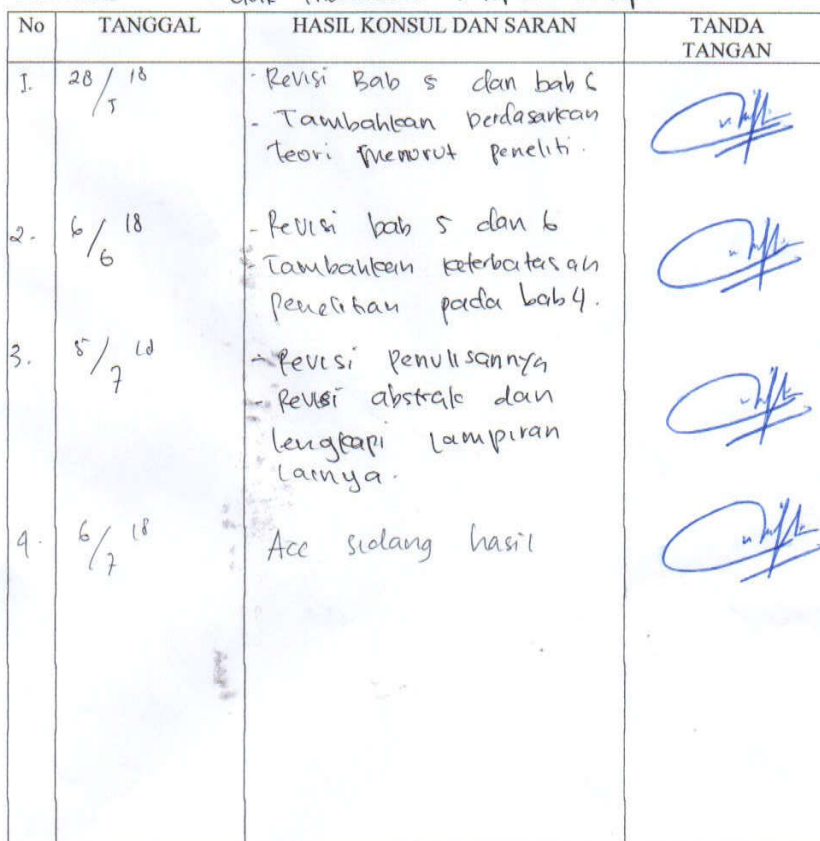 No TANGGAL HASIL KONSUL DAN SARAN TANDA TANGAN
1. 28/5 18 - Revisi Bab 5 dan bab 6
- Tambahkan berdasarkan
teori menurut peneliti.
2. 6/6 18 - Revisi bab 5 dan 6
- Tambahkan keterbatasan
penelitian pada bab 4.
3. 5/7 18 - Revisi penulisannya
- Revisi abstrak dan
lengkapi lampiran
lainya.
4. 6/7 18 Acc sidang hasil